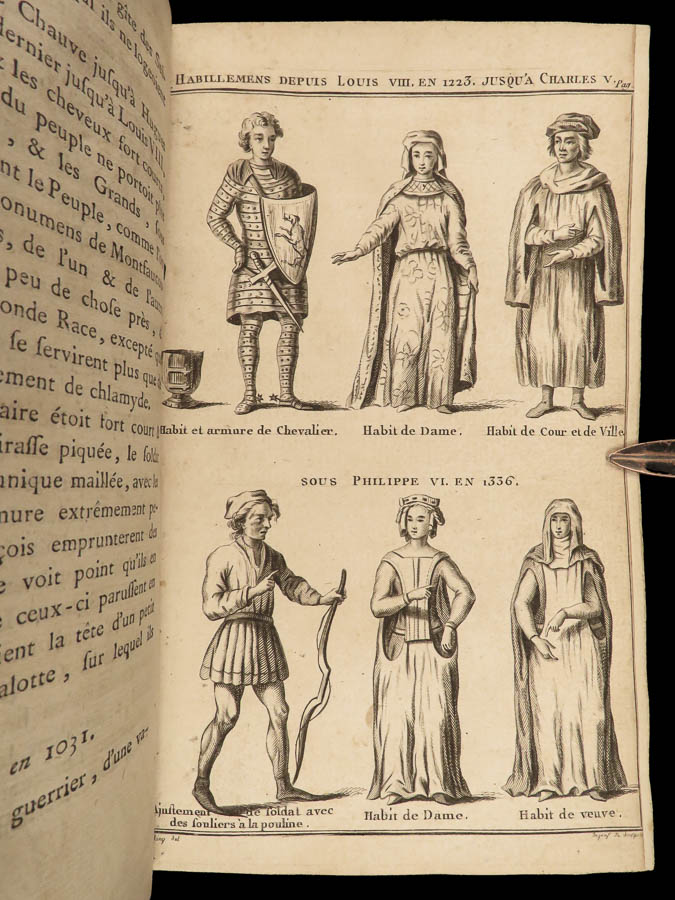 gîte des
ils ne logeoient
Chauve jusqu'à Hugues
dernier jusqu'à Louis VIII
les cheveux fort courts
du peuple ne portoit
, & les Grands,
nt le Peuple, comme
onumens de Montfaucon
s, de l'un & de l'autre
peu de chose près,
onde Race, excepté
se servirent plus que
ement de chlamyde.
aire étoit fort court
irasse piquée, le soldat
unique maillée, avec les
mure extrêmement pe-
çois emprunterent des
e voit point qu'ils en
e ceux-ci parussent en
ient la tête d'un petit
alotte, sur lequel ils
en 1031.
guerrier, d'une va-
HABILLEMENS DEPUIS LOUIS VIII. EN 1223. JUSQU'À CHARLES V. Pag
Habit et armure de Chevalier. Habit de Dame. Habit de Cour et de Ville
SOUS PHILIPPE VI. EN 1336.
Ajustement de soldat avec
des souliers à la pouline. Habit de Dame. Habit de veuve.
del